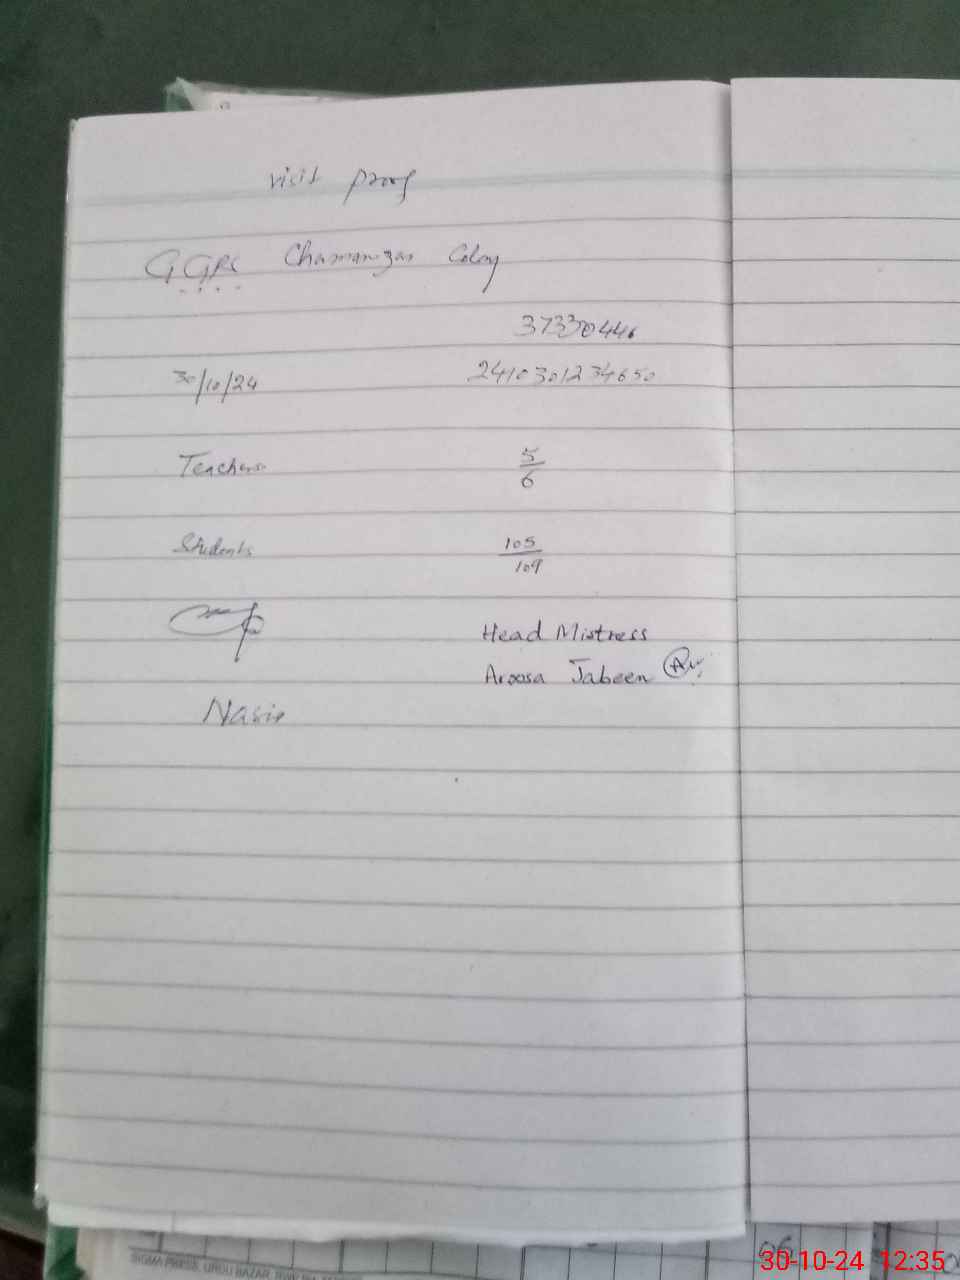 visit proof
GGPS Chamanzar Colony
37330446
30/10/24 2410301234650
Teachers 5/6
Students 105/109
Head Mistress
Aroosa Jabeen
Nasir
SIGMA PRESS, URDU BAZAR,
06
30-10-24 12:35